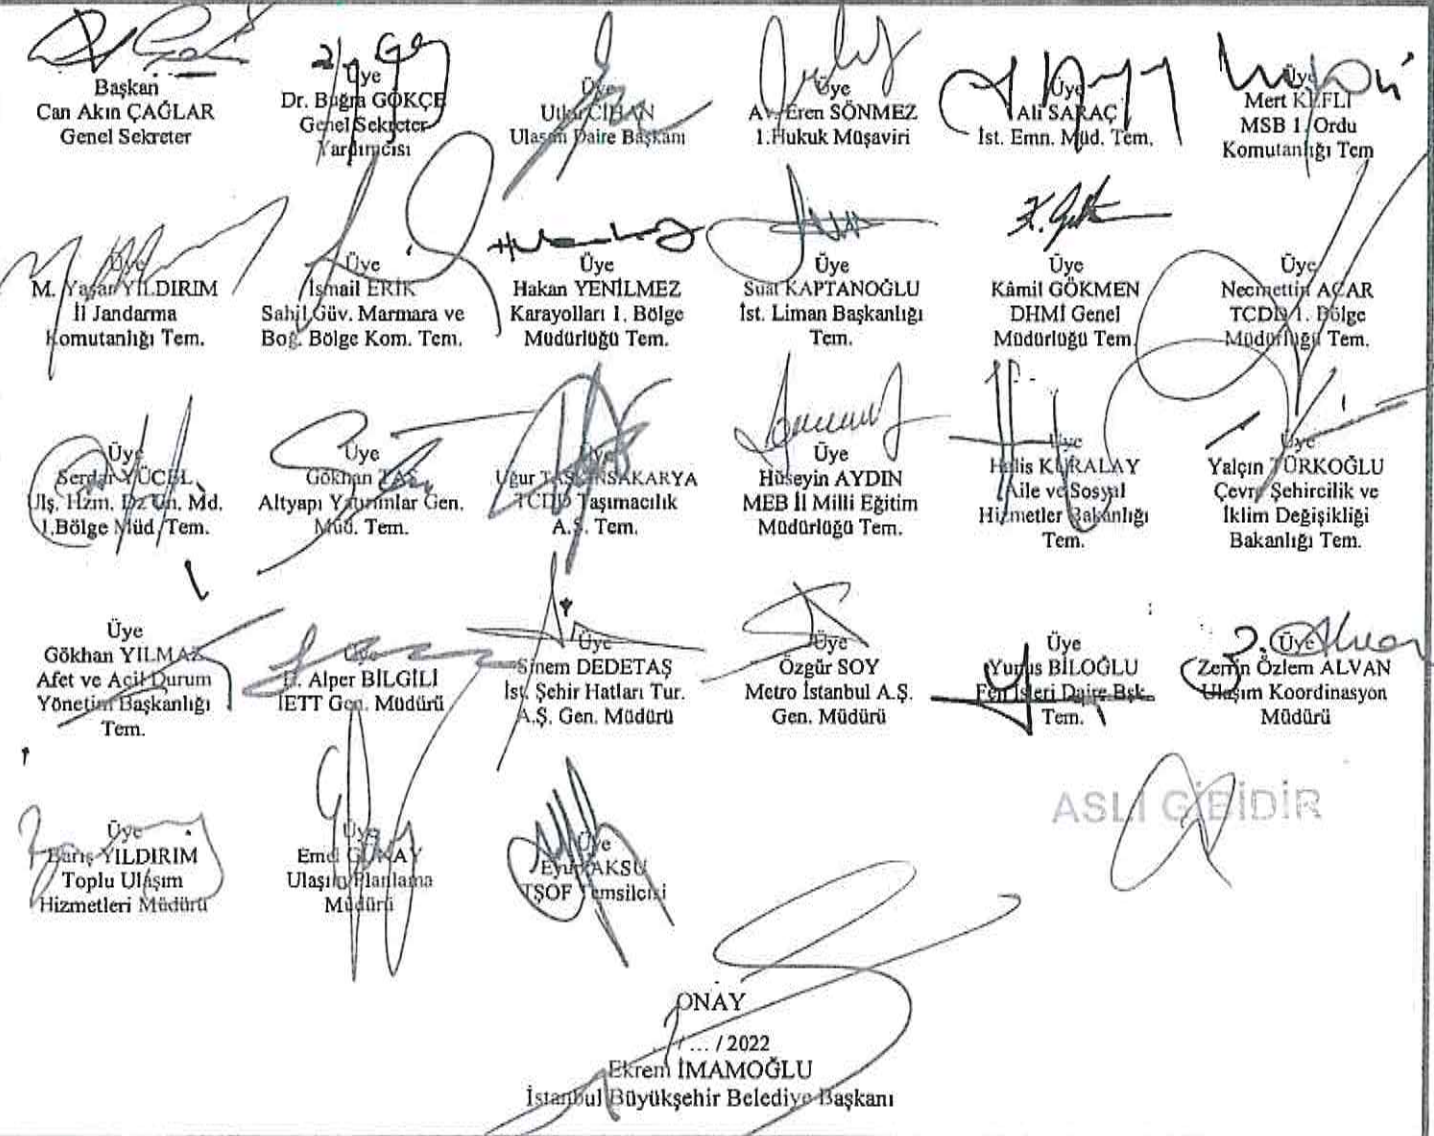 Başkan
Can Akın ÇAĞLAR
Genel Sekreter
Üye
Dr. Buğra GÖKÇE
Genel Sekreter
Yardımcısı
Üye
Utku CİHAN
Ulaşım Daire Başkanı
Üye
Av. Eren SÖNMEZ
1.Hukuk Müşaviri
Üye
Ali SARAÇ
İst. Emn. Müd. Tem.
Üye
Mert KEFLİ
MSB 1. Ordu
Komutanlığı Tem
Üye
M. Yaşar YILDIRIM
İl Jandarma
Komutanlığı Tem.
Üye
İsmail ERİK
Sahil Güv. Marmara ve
Boğ. Bölge Kom. Tem.
Üye
Hakan YENİLMEZ
Karayolları 1. Bölge
Müdürlüğü Tem.
Üye
Suat KAPTANOĞLU
İst. Liman Başkanlığı
Tem.
K. Gök
Üye
Kâmil GÖKMEN
DHMİ Genel
Müdürlüğü Tem.
Üye
Necmettin ACAR
TCDD 1. Bölge
Müdürlüğü Tem.
Üye
Serdar YÜCEL
Ulş. Hzm. Dz Ün. Md.
1.Bölge Müd. Tem.
Üye
Gökhan TAŞ
Altyapı Yatırımlar Gen.
Müd. Tem.
Üye
Uğur
TCDD Taşımacılık
A.Ş. Tem.
Üye
Hüseyin AYDIN
MEB İl Milli Eğitim
Müdürlüğü Tem.
Üye
Halis KURALAY
Aile ve Sosyal
Hizmetler Bakanlığı
Tem.
Üye
Yalçın TÜRKOĞLU
Çevre Şehircilik ve
İklim Değişikliği
Bakanlığı Tem.
Üye
Gökhan YILMAZ
Afet ve Acil Durum
Yönetim Başkanlığı
Tem.
Üye
Alper BİLGİLİ
İETT Gen. Müdürü
Üye
Sinem DEDETAŞ
İst. Şehir Hatları Tur.
A.Ş. Gen. Müdürü
Üye
Özgür SOY
Metro İstanbul A.Ş.
Gen. Müdürü
Üye
Yunus BİLOĞLU
Fen İşleri Daire Bşk.
Tem.
Üye
Zemin Özlem ALVAN
Ulaşım Koordinasyon
Müdürü
Üye
Barış YILDIRIM
Toplu Ulaşım
Hizmetleri Müdürü
Üye
GÜNAY
Ulaşım Planlama
Müdürü
Üye
Eyup AKSU
TŞOF Temsilcisi
ASLI GİBİDİR
ONAY
... / ... / 2022
Ekrem İMAMOĞLU
İstanbul Büyükşehir Belediye Başkanı